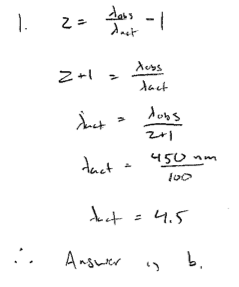 1. z = λobs / λact - 1
z+1 = λobs / λact
λact = λobs / z+1
λact = 450 nm / 100
λact = 4.5
∴ Answer is b.